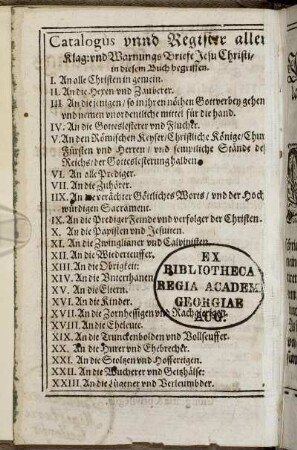 Catalogus vnnd Register aller
Klag: vnd Warnungs Briefe Jesu Christi/
in diesem Buch begriffen.
I. An alle Christen in gemein.
II. An die Hexen vnd Zauberer.
III An diejenigen/ so in ihren nöhten Gott verbey gehen
vnd nemen vnordentliche mittel für die hand.
IV. An die Gotteslesterer vnd Flucher.
V. An den Römischen Keyser/ Christliche Könige/ Chur
Fürsten vnd Herren/ vnd semptliche Stände des
Reichs/ der Gotteslesterung halben.
VI. An alle Prediger.
VII. An die Zuhörer.
IIX. An die verächter Göttliches Worts/ vnd der Hoch
würdigen Sacrament.
IX. An die Prediger Feinde vnd verfolger der Christen.
X. An die Papisten vnd Jesuiten.
XI. An die Zwinglianer vnd Calvinisten.
XII. An die Wiederteuffer.
XIII. An die Obrigkeit.
XIV. An die Vnterthanen.
XV. An die Eltern.
XVI. An die Kinder.
XVII. An die Zornhessigen vnd Rachgierigen.
XVIII. An die Eheleute.
XIX. An die Trunckenbolden vnd Vollseuffer.
XX. An die Hurer vnd Ehebrecher.
XXI. An die Stolzen vnd Hoffertigen.
XXII. An die Wucherer vnd Geitzhälse.
XXIII. An die Lügener vnd Verleumbder.
EX
BIBLIOTHECA
REGIA ACADEM
GEORGIAE
AUG.